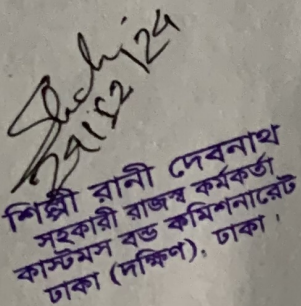 29/12/24
শিল্পী রানী দেবনাথ
সহকারী রাজস্ব কর্মকর্তা
কাস্টমস বন্ড কমিশনারেট
ঢাকা (দক্ষিণ), ঢাকা।